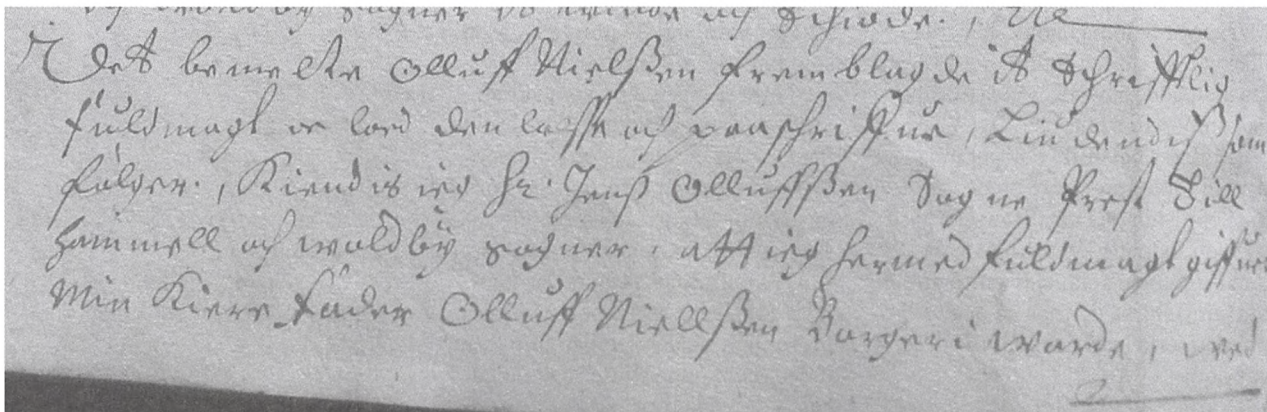 och woldby Sogner Schiøde.
Det bemelte Olluff Nielsßen frem blagde it Schrifftlig
fuldmagt oc loed den lesse och paaschriffue, Liudendiß som
følger., Kiendis ieg Hr. Jenß Olluffsßen Sogne Prest Till
Hammell och woldby Sogner. att ieg hermed fuldmagt giffuer
Min Kiere fader Olluff Niellsßen Borger i warde, wed